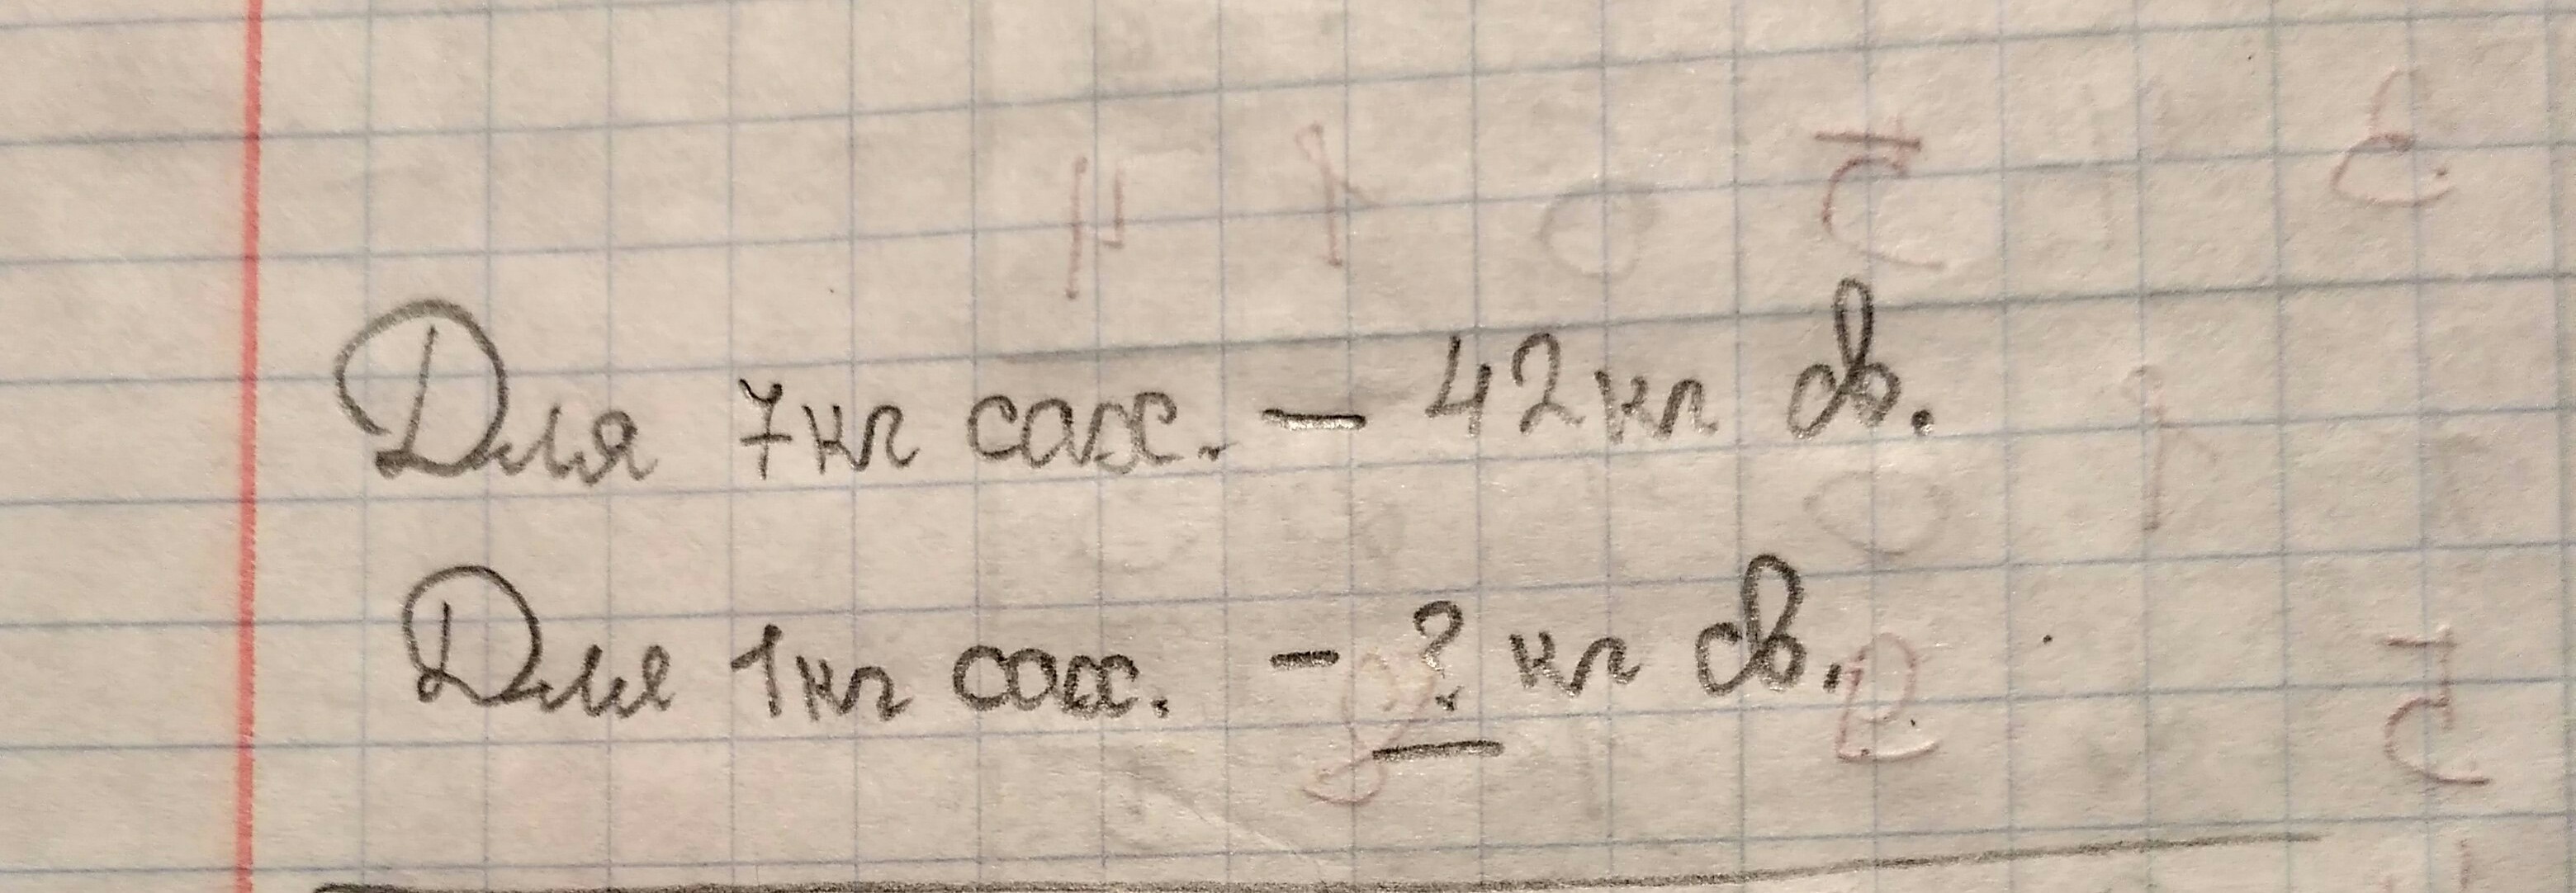 Для 7кг сах. - 42кг св.
Для 1кг сах. - ? кг св.